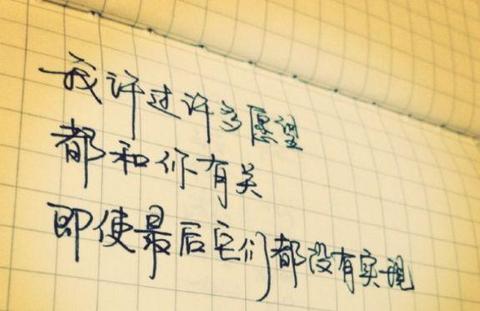 我许过许多愿望
都和你有关
即使最后它们都没有实现